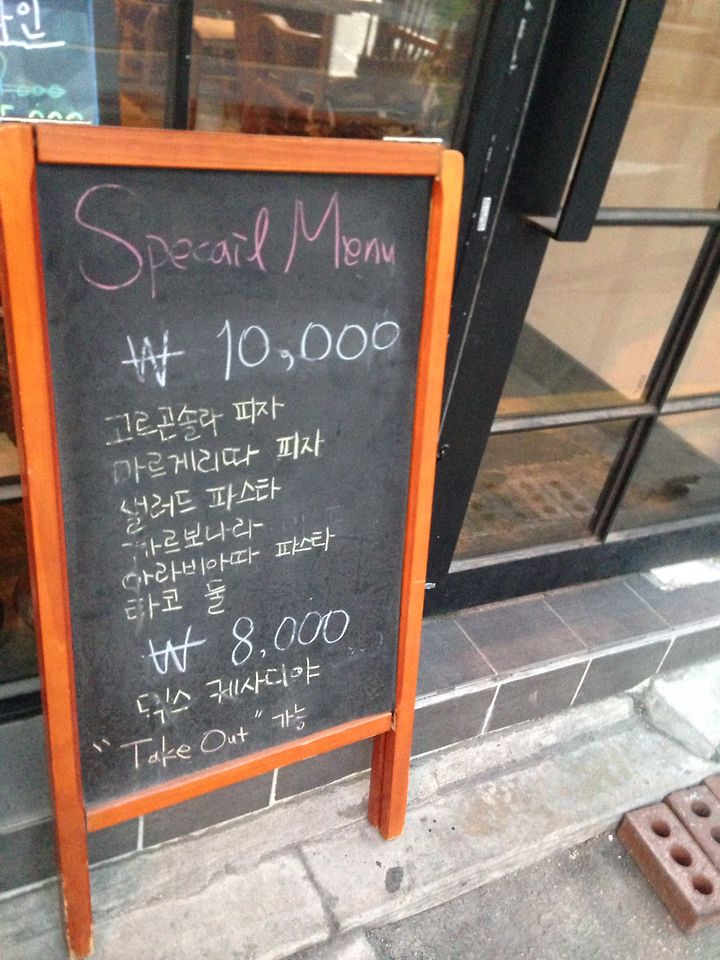 와인
5,000
Specail Menu
₩ 10,000
고르곤솔라 피자
마르게리따 피자
샐러드 파스타
까르보나라
아라비아따 파스타
타코 둘
₩ 8,000
믹스 퀘사디야
"Take Out" 가능